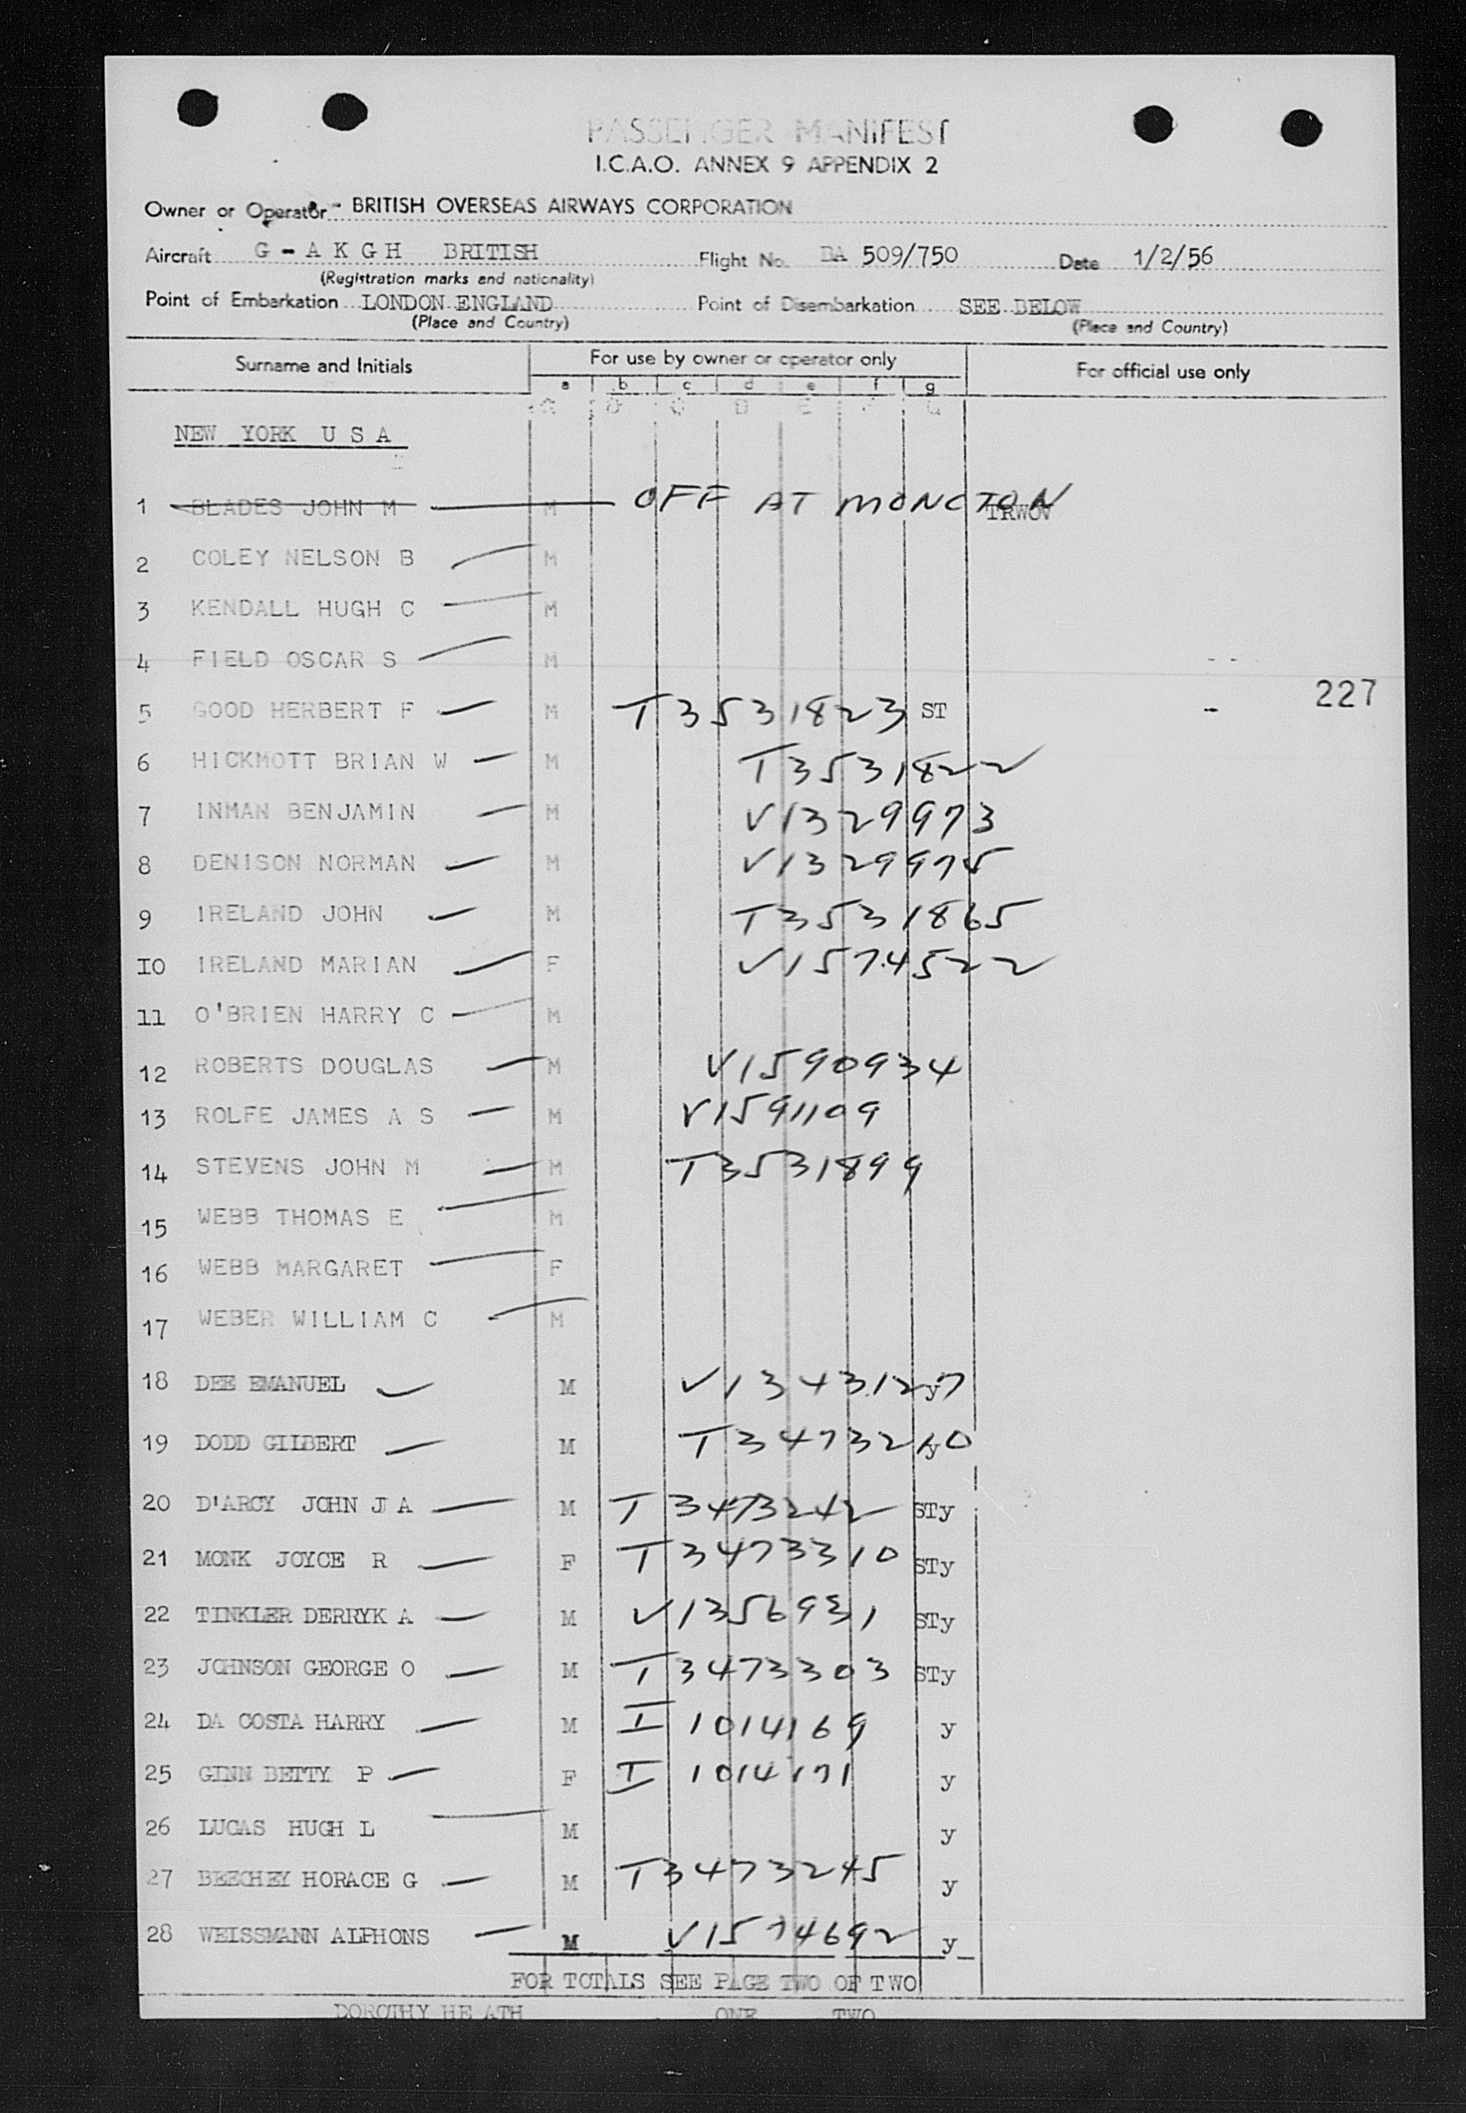 PASSENGER MANIFEST
I.C.A.O. ANNEX 9 APPENDIX 2
Owner or Operator BRITISH OVERSEAS AIRWAYS CORPORATION
Aircraft G-AKGH BRITISH Flight No. BA 509/750 Date 1/2/56
(Registration marks and nationality)
Point of Embarkation LONDON ENGLAND Point of Disembarkation SEE BELOW
(Place and Country) (Place and Country)
Surname and Initials For use by owner or operator only For official use only
a b c d e f g
NEW YORK U S A
1 BLADES JOHN M M OFF AT MONCTON TRWOV
2 COLEY NELSON B M
3 KENDALL HUGH C M
4 FIELD OSCAR S M
227
5 GOOD HERBERT F M T3531823 ST
6 HICKMOTT BRIAN W M T3531822
7 INMAN BENJAMIN M V1329973
8 DENISON NORMAN M V1329975
9 IRELAND JOHN M T3531865
10 IRELAND MARIAN F V1574522
11 O'BRIEN HARRY C M
12 ROBERTS DOUGLAS M V1590934
13 ROLFE JAMES A S M V1591109
14 STEVENS JOHN M M T3531899
15 WEBB THOMAS E M
16 WEBB MARGARET F
17 WEBER WILLIAM C M
18 DEE EMANUEL M V1343127 y
19 DODD GILBERT M T3473210 y
20 D'ARCY JOHN J A M T3473242 STy
21 MONK JOYCE R F T3473310 STy
22 TINKLER DERRYK A M V1356931 STy
23 JOHNSON GEORGE O M T3473303 STy
24 DA COSTA HARRY M I 1014169 y
25 GINN BETTY P F I 1014171 y
26 LUCAS HUGH L M y
27 BEECHEY HORACE G M T3473245 y
28 WEISSMANN ALPHONS M V1574692 y
FOR TOTALS SEE PAGE TWO OF TWO
DOROTHY HEATH ONE TWO